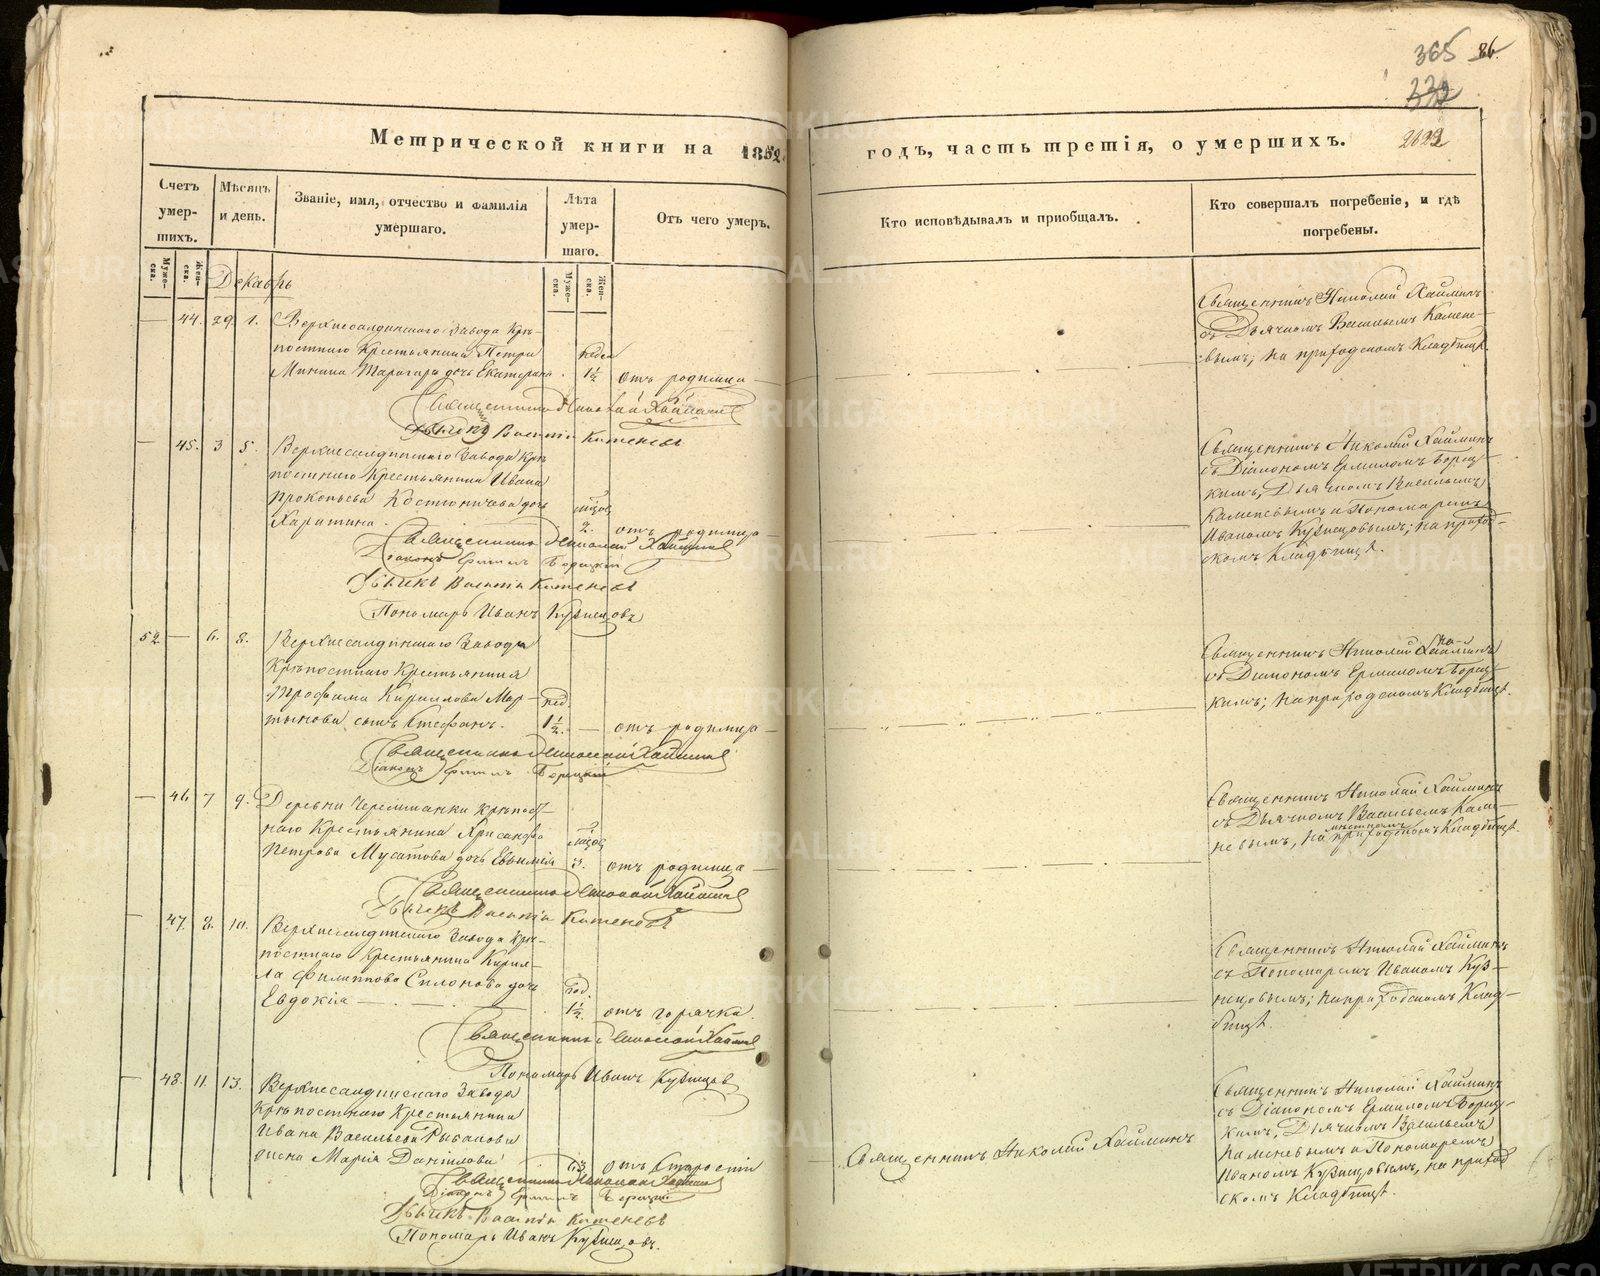 365 86.
332
2622
Метрической книги на 1852
годъ, часть третія, о умершихъ.
Счетъ умер-шихъ.
Мѣсяцъ и день.
Званіе, имя, отчество и фамилія умершаго.
Лѣта умер-шаго.
Отъ чего умеръ.
Кто исповѣдывалъ и пріобщалъ.
Кто совершалъ погребеніе, и гдѣ погребены.
Муже-ска.
Жен-ска.
Муже-ска.
Жен-ска.
Декабрь
44. 29. 1. Верхнесалдинскаго Завода Крѣ-
постнаго Крестьянина Петра
недел
Минина дочь Екатерина 1½ отъ родимца
Священникъ Николай Хайминъ
Дьячекъ Василій Каменевъ
Священникъ Николай Хайминъ
съ Дьячкомъ Васильемъ Камене-
вымъ; на приходскомъ Кладбищѣ.
45. 3 5. Верхнесалдинскаго Завода Крѣ-
постнаго Крестьянина Ивана
Прокопьева дочь
мѣсяц
Харитина. 2. отъ родимца
Священникъ Николай Хайминъ
Діаконъ Ермилъ Борецкій
Дьячекъ Василій Каменевъ
Пономарь Иванъ Кузнецовъ
Священникъ Николай Хайминъ
съ Діакономъ Ермиломъ Борец-
кимъ, Дьячкомъ Васильемъ
Каменевымъ и Пономаремъ
Иваномъ Кузнецовымъ; на приход-
скомъ Кладбищѣ.
52 — 6. 8. Верхнесалдинскаго Завода
Крѣпостнаго Крестьянина
Трофима Кириллова Мар-
нед.
тынова сынъ Стефанъ. 1½ — отъ родимца
Священникъ Николай Хайминъ
Діаконъ Ермилъ Борецкій
Священникъ Николай Хайминъ
съ Діакономъ Ермиломъ Борец-
кимъ; на приходскомъ Кладбищѣ.
46. 7 9. Деревни Черемшанки Крѣпост-
наго Крестьянина Хрисанфа
мѣсяц
Петрова Мусатова дочь Евфимія 3. отъ родимца
Священникъ Николай Хайминъ
Дьячекъ Василій Каменевъ
Священникъ Николай Хайминъ
съ Дьячкомъ Васильемъ Каме-
невымъ, на мѣстномъ приходскомъ Кладбищѣ.
47. 8. 10. Верхнесалдинскаго Завода Крѣ-
постнаго Крестьянина Кирил-
ла Филиппова дочь
год.
Евдокія 1½ отъ горячки.
Священникъ Николай Хайминъ
Пономарь Иванъ Кузнецовъ
Священникъ Николай Хайминъ
съ Пономаремъ Иваномъ Куз-
нецовымъ; на приходскомъ Клад-
бищѣ.
48. 11. 13. Верхнесалдинскаго Завода
Крѣпостнаго Крестьянина
Ивана Васильева
жена Марія Данилова 63. отъ старости
Священникъ Николай Хайминъ
Діаконъ Ермилъ Борецкій
Дьячекъ Василій Каменевъ
Пономарь Иванъ Кузнецовъ.
Священникъ Николай Хайминъ
Священникъ Николай Хайминъ
съ Діакономъ Ермиломъ Борец-
кимъ, Дьячкомъ Васильемъ
Каменевымъ и Пономаремъ
Иваномъ Кузнецовымъ, на приход
скомъ Кладбищѣ.
METRIKI.GASO-URAL.RU